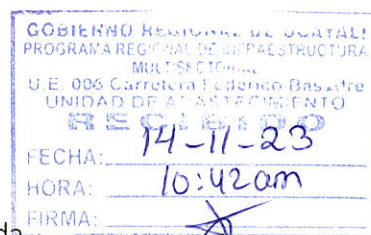 GOBIERNO REGIONAL DE UCAYALI
PROGRAMA REGIONAL DE INFRAESTRUCTURA
MULTISECTORIAL
U.E. 006 Carretera Federico Basadre
UNIDAD DE ABASTECIMIENTO
RECIBIDO
FECHA: 14-11-23
HORA: 10:42am
FIRMA:
da